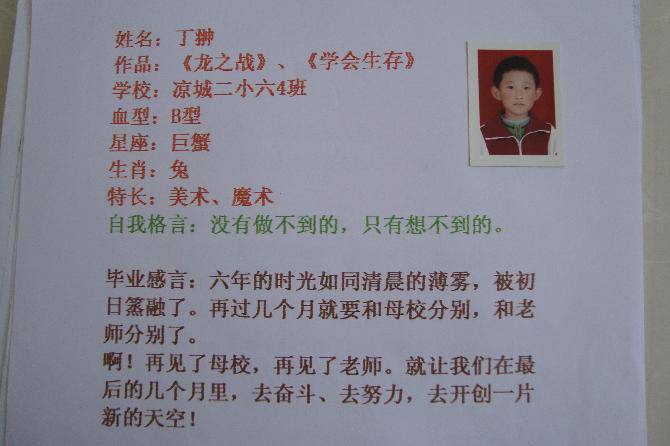 姓名：丁翀
作品：《龙之战》、《学会生存》
学校：凉城二小六4班
血型：B型
星座：巨蟹
生肖：兔
特长：美术、魔术
自我格言：没有做不到的，只有想不到的。
毕业感言：六年的时光如同清晨的薄雾，被初
日蒸融了。再过几个月就要和母校分别，和老
师分别了。
啊！再见了母校，再见了老师。就让我们在最
后的几个月里，去奋斗、去努力，去开创一片
新的天空！